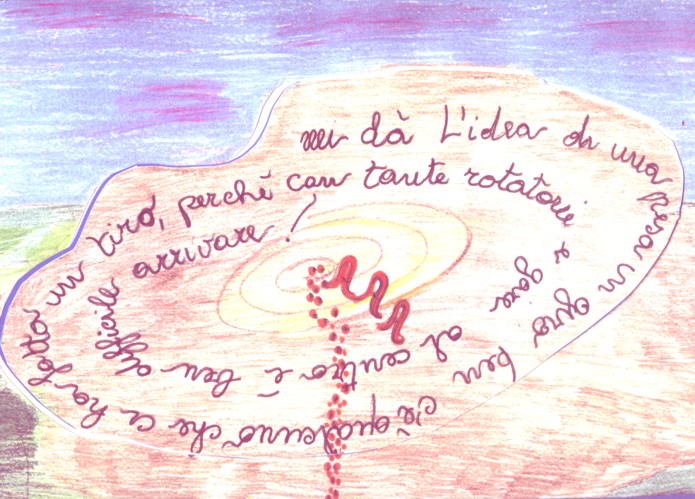 mi dà L'idea di una presa in giro
c'è qualcuno che ci ha fatto un tiro, perché con tante rotatorie e
al centro è ben difficile arrivare!